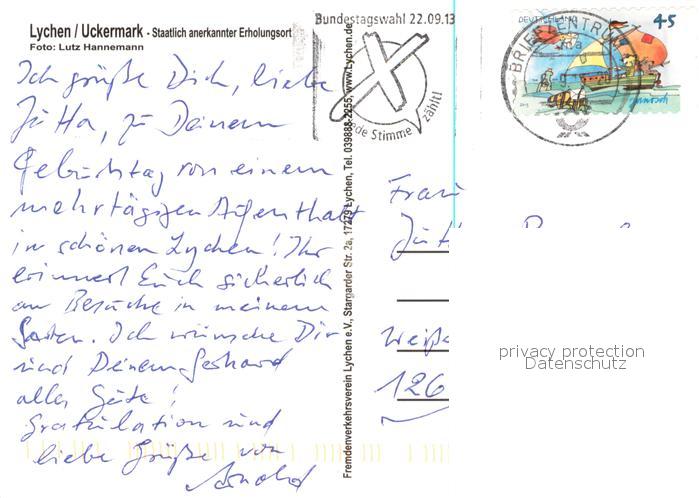 Lychen / Uckermark - Staatlich anerkannter Erholungsort
Foto: Lutz Hannemann
Ich grüße Dich, liebe
Jutta, zu Deinem
Geburtstag von einem
mehrtägigen Aufenthalt
im schönen Lychen! Ihr
erinnert Euch sicherlich
an Besuche in meinem
Garten. Ich wünsche Dir
und Deinem Gerhard
alles Gute!
Gratulation und
liebe Grüße von
Arnold
Fremdenverkehrsverein Lychen e.V., Stargarder Str. 2a, 17279 Lychen, Tel. 039888-2255, www.Lychen.de
Bundestagswahl 22.09.13
Jede Stimme zählt!
DEUTSCHLAND
45
BRIEFZENTRUM
Janosch
Frau
126
privacy protection
Datenschutz